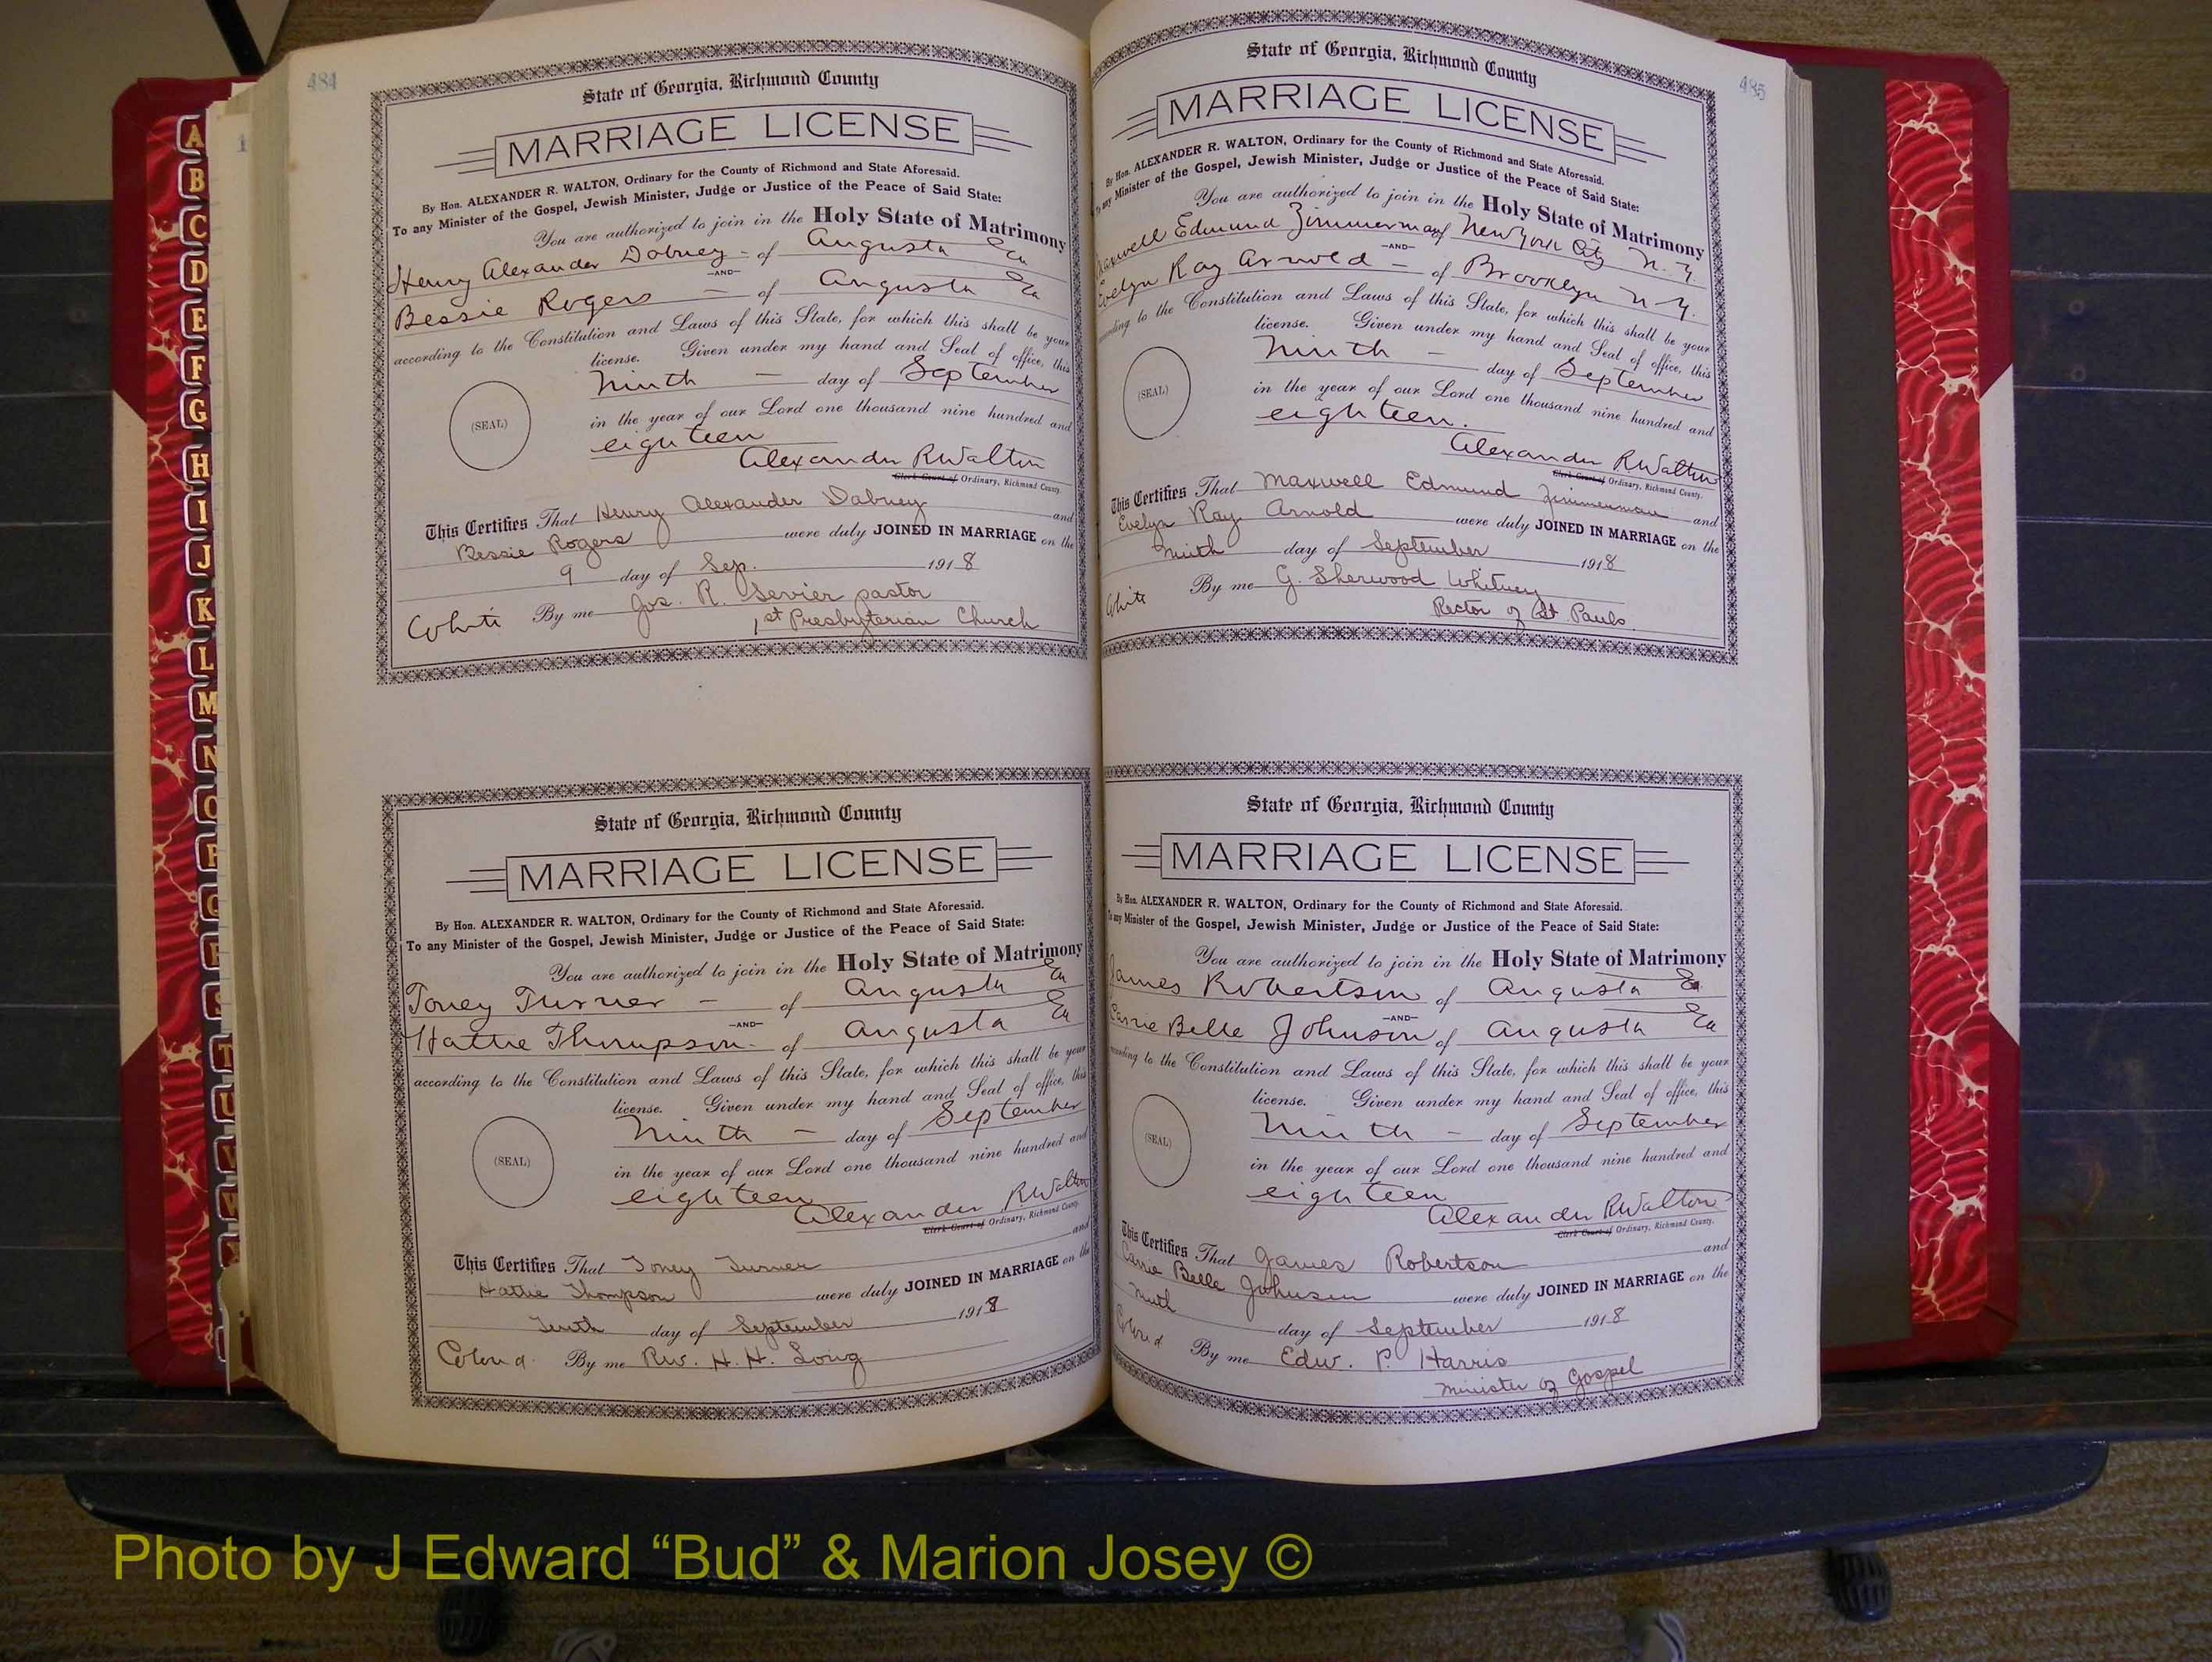 484
State of Georgia, Richmond County
MARRIAGE LICENSE
By Hon. ALEXANDER R. WALTON, Ordinary for the County of Richmond and State Aforesaid.
To any Minister of the Gospel, Jewish Minister, Judge or Justice of the Peace of Said State:
You are authorized to join in the Holy State of Matrimony
Henry Alexander Dabney - of Augusta Ga
—AND—
Bessie Rogers — of Augusta Ga
according to the Constitution and Laws of this State, for which this shall be your
license. Given under my hand and Seal of office, this
Ninth — day of September
(SEAL)
in the year of our Lord one thousand nine hundred and
eighteen
Alexander R Walton
Clerk Court of Ordinary, Richmond County.
This Certifies That Henry Alexander Dabney and
Bessie Rogers were duly JOINED IN MARRIAGE on the
9 day of Sep. 1918
White By me Jos. R. Sevier pastor
1st Presbyterian Church
State of Georgia, Richmond County
MARRIAGE LICENSE
By Hon. ALEXANDER R. WALTON, Ordinary for the County of Richmond and State Aforesaid.
To any Minister of the Gospel, Jewish Minister, Judge or Justice of the Peace of Said State:
You are authorized to join in the Holy State of Matrimony
Toney Turner — of Augusta Ga
—AND—
Hattie Thompson - of Augusta Ga
according to the Constitution and Laws of this State, for which this shall be your
license. Given under my hand and Seal of office, this
Ninth — day of September
(SEAL)
in the year of our Lord one thousand nine hundred and
eighteen
Alexander R Walton
Clerk Court of Ordinary, Richmond County.
This Certifies That Toney Turner and
Hattie Thompson were duly JOINED IN MARRIAGE on the
Tenth day of September 1918
Colord. By me Rev. H. H. Long
485
State of Georgia, Richmond County
MARRIAGE LICENSE
By Hon. ALEXANDER R. WALTON, Ordinary for the County of Richmond and State Aforesaid.
To any Minister of the Gospel, Jewish Minister, Judge or Justice of the Peace of Said State:
You are authorized to join in the Holy State of Matrimony
Maxwell Edmund Zimmerman of New York City N. Y.
—AND—
Evelyn Ray Arnold — of Brooklyn N Y.
according to the Constitution and Laws of this State, for which this shall be your
license. Given under my hand and Seal of office, this
Ninth — day of September
(SEAL)
in the year of our Lord one thousand nine hundred and
eighteen.
Alexander R Walton
Clerk Court of Ordinary, Richmond County.
This Certifies That Maxwell Edmund Zimmerman and
Evelyn Ray Arnold were duly JOINED IN MARRIAGE on the
ninth day of September 1918
White By me G. Sherwood Whitney
Rector of St Pauls
State of Georgia, Richmond County
MARRIAGE LICENSE
By Hon. ALEXANDER R. WALTON, Ordinary for the County of Richmond and State Aforesaid.
To any Minister of the Gospel, Jewish Minister, Judge or Justice of the Peace of Said State:
You are authorized to join in the Holy State of Matrimony
James Robertson of Augusta Ga
—AND—
Carrie Belle Johnson of Augusta Ga
according to the Constitution and Laws of this State, for which this shall be your
license. Given under my hand and Seal of office, this
Ninth — day of September
(SEAL)
in the year of our Lord one thousand nine hundred and
eighteen
Alexander R Walton
Clerk Court of Ordinary, Richmond County.
This Certifies That James Robertson and
Carrie Belle Johnson were duly JOINED IN MARRIAGE on the
Ninth day of September 1918
Colord By me Edw. P. Harris
minister of Gospel
A
B
C
D
E
F
G
H
I
J
K
L
M
N
O
P
Q
R
S
T
U
V
W
Photo by J Edward “Bud” & Marion Josey ©